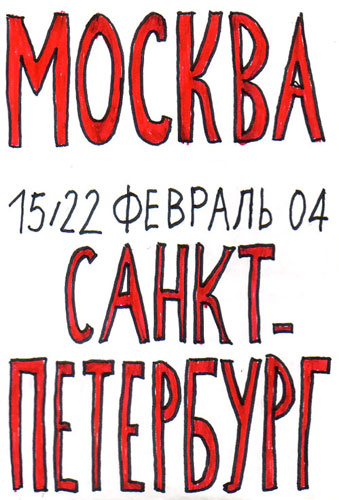 МОСКВА
15/22 ФЕВРАЛЬ 04
САНКТ-
ПЕТЕРБУРГ